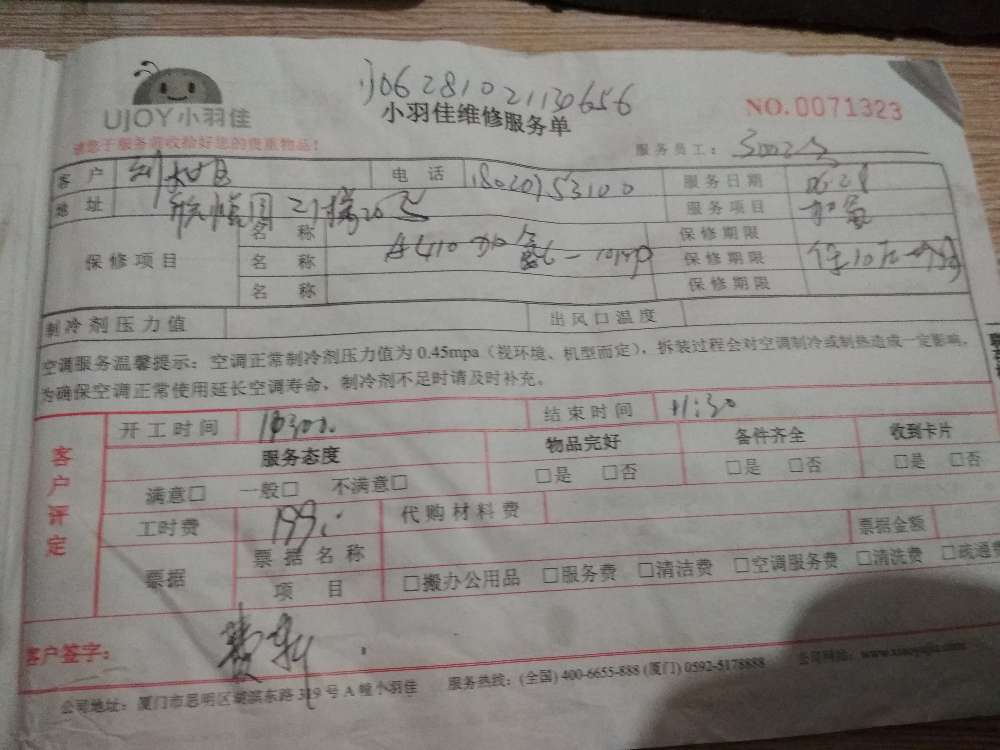 j062810213656
UJOY小羽佳
小羽佳维修服务单
NO.0071323
请您于服务前收拾好您的贵重物品!
服务员工:
客户 电话 18020753100 服务日期
地址 21楼 服务项目 加氟
名称 保修期限
保修项目 名称 保修期限
名称 保修期限
制冷剂压力值 出风口温度
空调服务温馨提示:空调正常制冷剂压力值为0.45mpa(视环境、机型而定),拆装过程会对空调制冷或制热造成一定影响,
为确保空调正常使用延长空调寿命,制冷剂不足时请及时补充。
客户评定
开工时间 结束时间 11:30
服务态度 物品完好 备件齐全 收到卡片
满意□ 一般□ 不满意□ □是 □否 □是 □否 □是 □否
工时费 199 代购材料费
票据 票据名称 票据金额
项目 □搬办公用品 □服务费 □清洁费 □空调服务费 □清洗费 □疏通费
客户签字:
公司地址:厦门市思明区湖滨东路319号A幢小羽佳 服务热线:(全国)400-6655-888(厦门)0592-5178888 公司网站:www.xiaoyujia.com